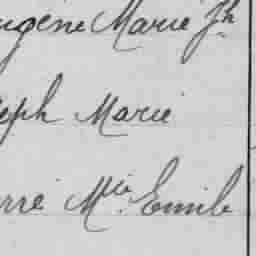 ugène Marie Jh
eph Marie
erre Mie Emile